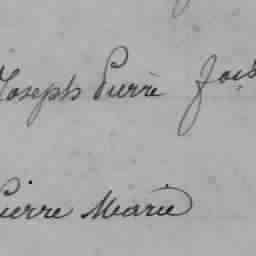 Joseph Pierre
Pierre Marie